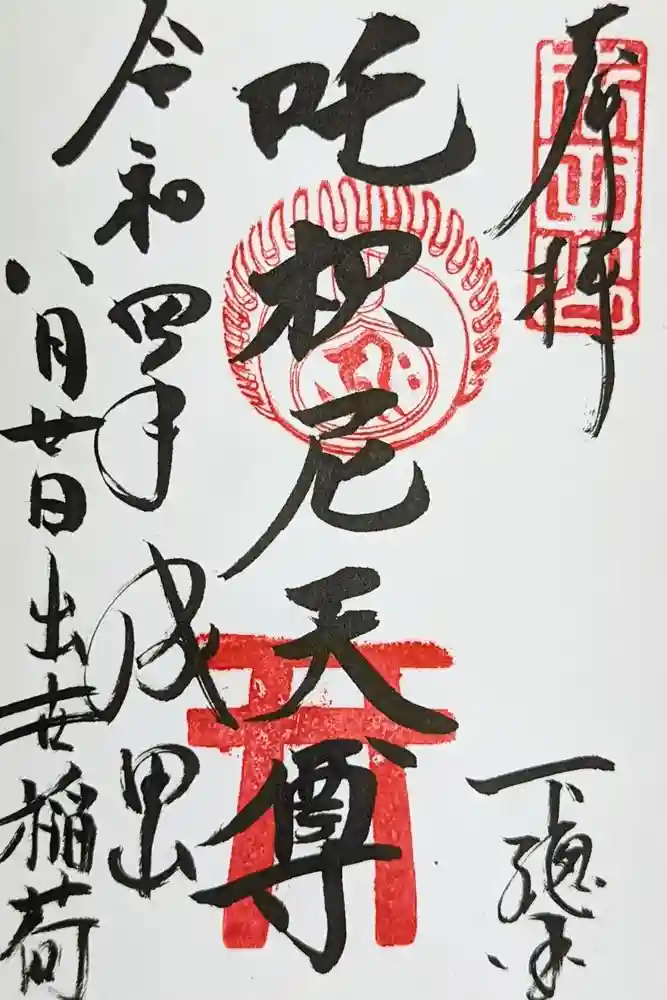 奉拝
吒枳尼天尊
令和四年 成田山
八月廿日 出世稲荷